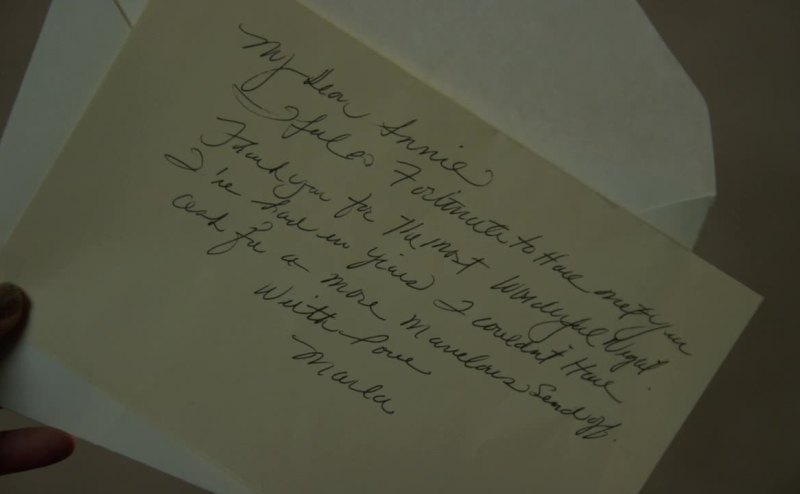 My Dear Annie
I feel so Fortunate to Have met you
Thank you for The most Wonderful Night.
I've had in years I couldn't Have
ask for a more Marvelous Send off.
With Love
Marla